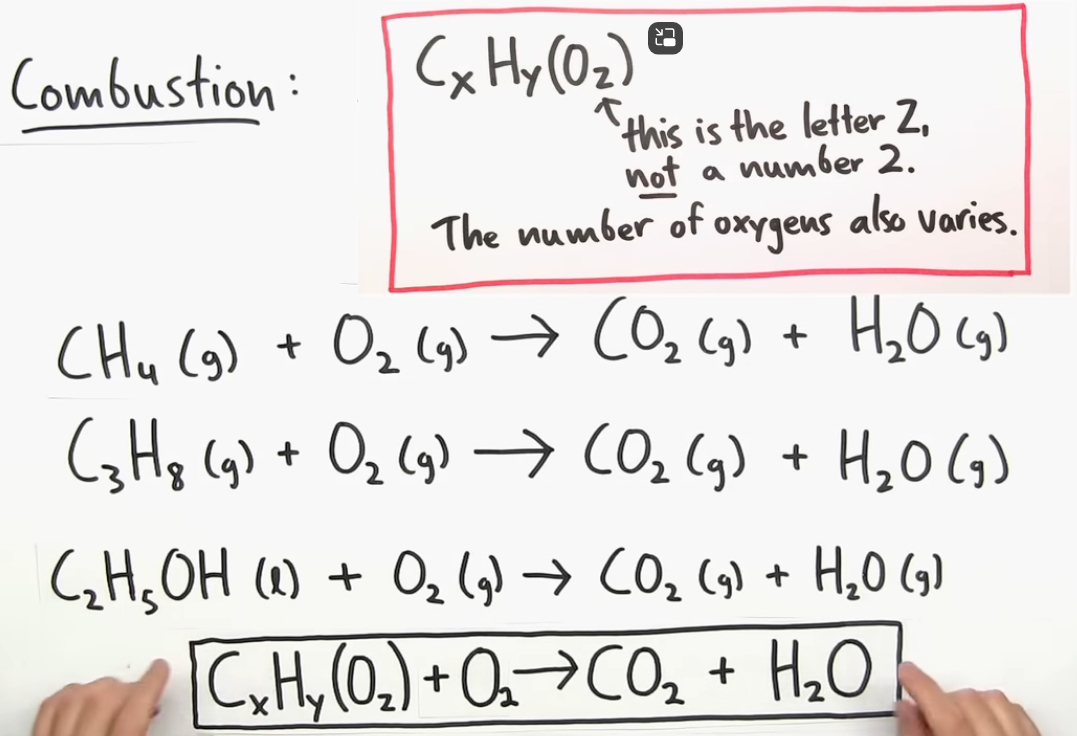 Combustion:
CₓHᵧ(O_z)
this is the letter Z,
not a number 2.
The number of oxygens also varies.
CH₄ (g) + O₂ (g) → CO₂ (g) + H₂O (g)
C₃H₈ (g) + O₂ (g) → CO₂ (g) + H₂O (g)
C₂H₅OH (l) + O₂ (g) → CO₂ (g) + H₂O (g)
CₓHᵧ(O_z) + O₂ → CO₂ + H₂O